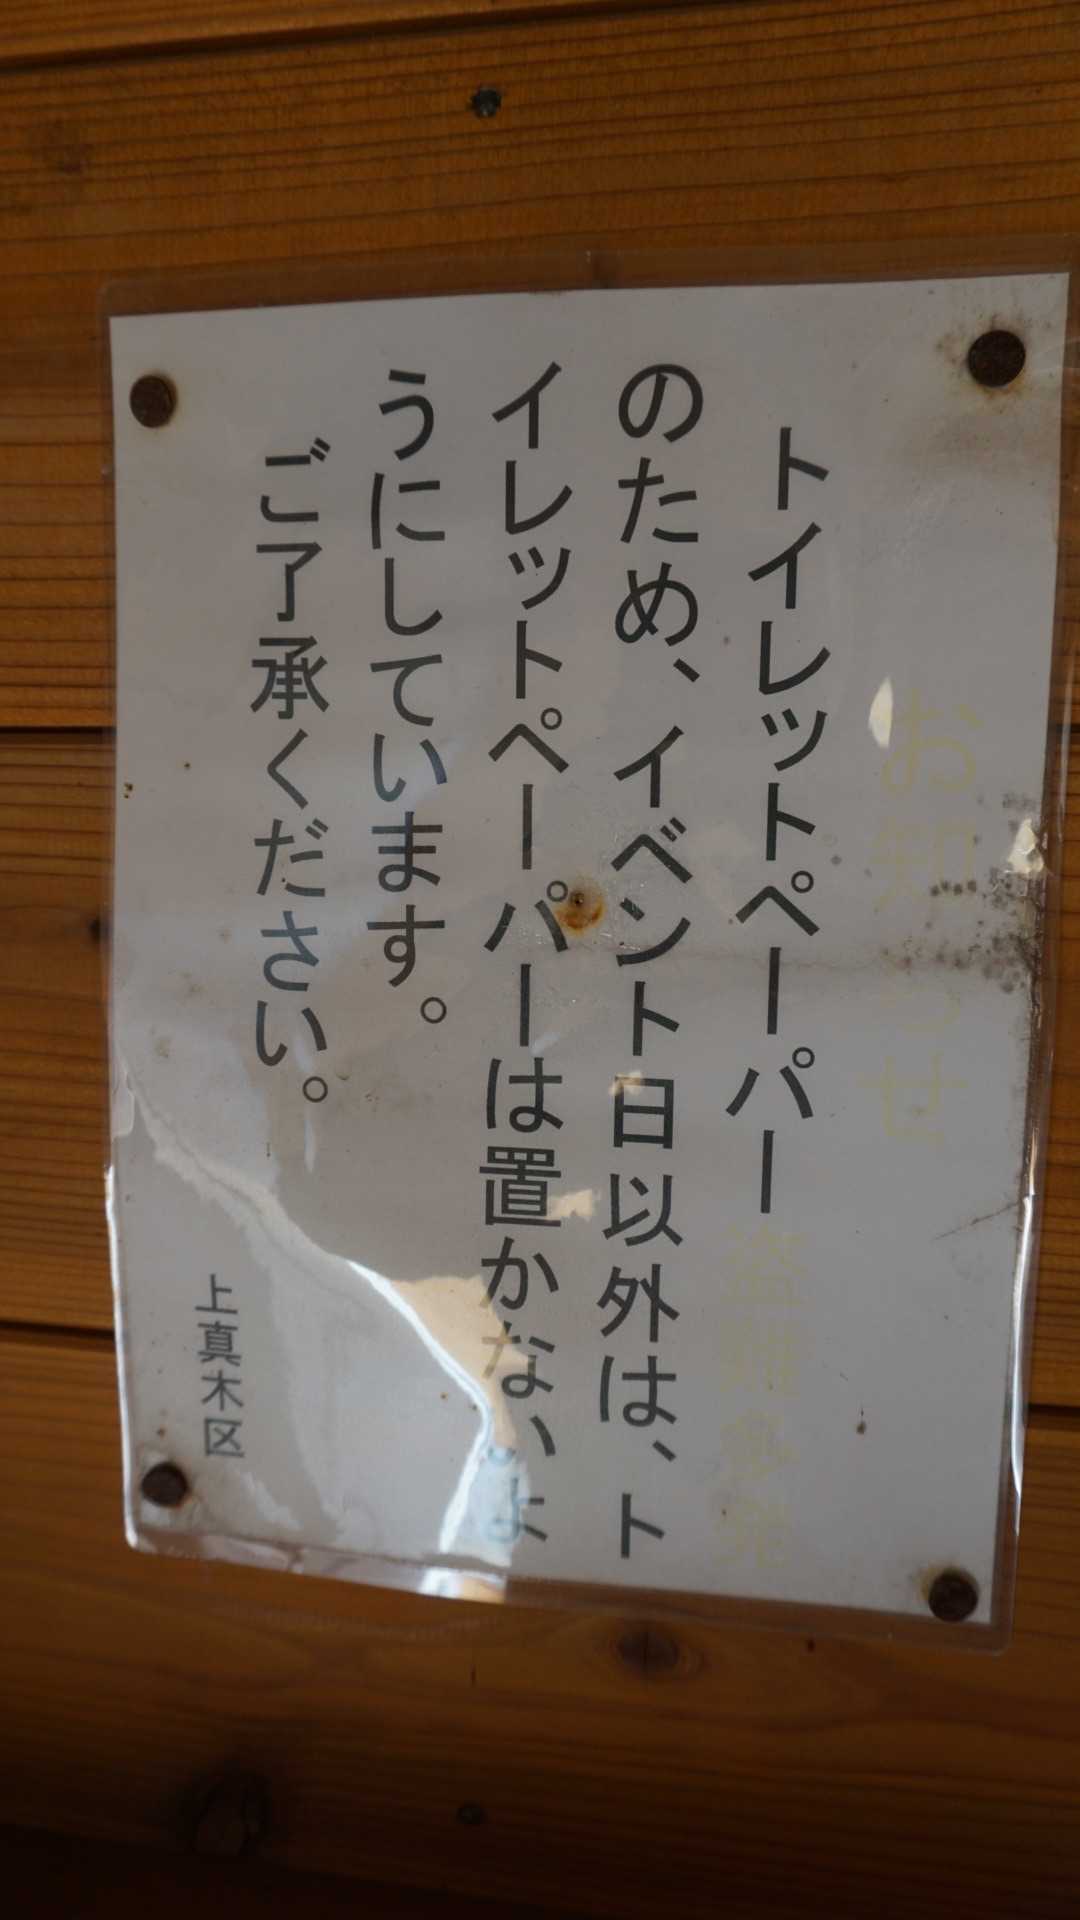 お知らせ
トイレットペーパー盗難多発
のため、イベント日以外は、ト
イレットペーパーは置かないよ
うにしています。
ご了承ください。
上真木区